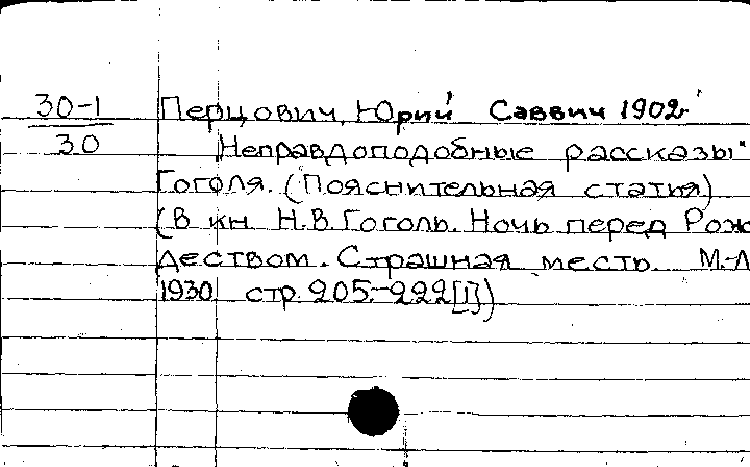 30-1 Перцович, Юрий Саввич 1902г
30 Неправдоподобные рассказы
Гоголя. (Пояснительная статья)
(В кн. Н.В. Гоголь. Ночь перед Рож
деством. Страшная месть. М.-Л
1930 стр. 205.-222[1])